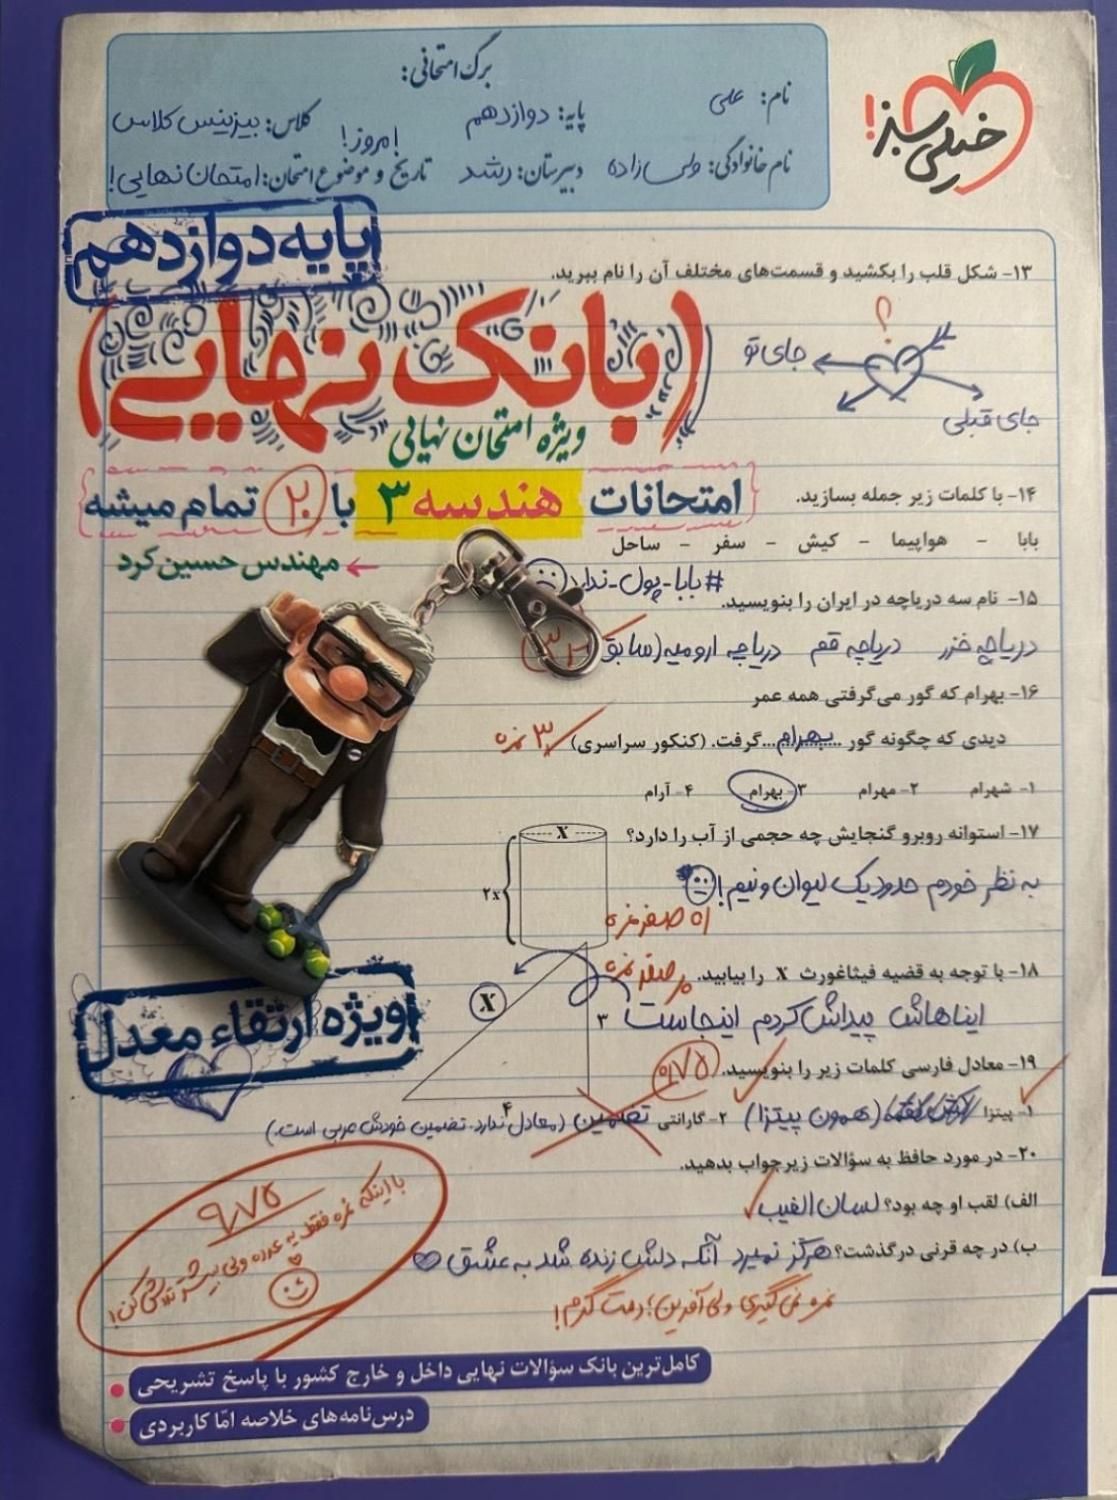 خیلی سبز!
برگ امتحانی:
نام: علی
پایه: دوازدهم
کلاس: بیزینس کلاس
نام خانوادگی: ولی‌زاده
دبیرستان: رشد
تاریخ و موضوع امتحان: امروز! امتحان نهایی!
پایه دوازدهم
۱۳- شکل قلب را بکشید و قسمت‌های مختلف آن را نام ببرید.
؟
جای تو
جای قبلی
(بانک نهایی)
ویژه امتحان نهایی
امتحانات هندسه ۳ با ۲۰ تمام میشه
مهندس حسین کرد
۱۴- با کلمات زیر جمله بسازید.
بابا - هواپیما - کیش - سفر - ساحل
#بابا-پول-ندارد
۱۵- نام سه دریاچه در ایران را بنویسید.
دریاچه خزر دریاچه قم دریاچه ارومیه (سابق
۱۶- بهرام که گور می‌گرفتی همه عمر
دیدی که چگونه گور ...بهرام... گرفت. (کنکور سراسری) ۳ نمره
۱- شهرام ۲- مهرام ۳- بهرام ۴- آرام
۱۷- استوانه روبرو گنجایش چه حجمی از آب را دارد؟
X
۲x
به نظر خودم حدود یک لیوان و نیم!
صفر نمره
۱۸- با توجه به قضیه فیثاغورث X را بیابید.
صفر نمره
X
۳
۴
ایناهاش پیداش کردم اینجاست
۱۹- معادل فارسی کلمات زیر را بنویسید.
۰٫۷۵
۱- پیتزا (همون پیتزا) ۲- گارانتی تضمین (معادل ندارد. تضمین خودش عربی است.)
۲۰- در مورد حافظ به سؤالات زیر جواب بدهید.
الف) لقب او چه بود؟ لسان الغیب
ب) در چه قرنی درگذشت؟ هرگز نمیرد آنکه دلش زنده شد به عشق
نمره نمی‌گیری ولی آفرین؛ دمت گرم!
ویژه ارتقاء معدل
۹٫۷۵
با اینکه نمره فقط یه عدده ولی بیشتر تلاش کن!
کامل‌ترین بانک سؤالات نهایی داخل و خارج کشور با پاسخ تشریحی
درس‌نامه‌های خلاصه امّا کاربردی